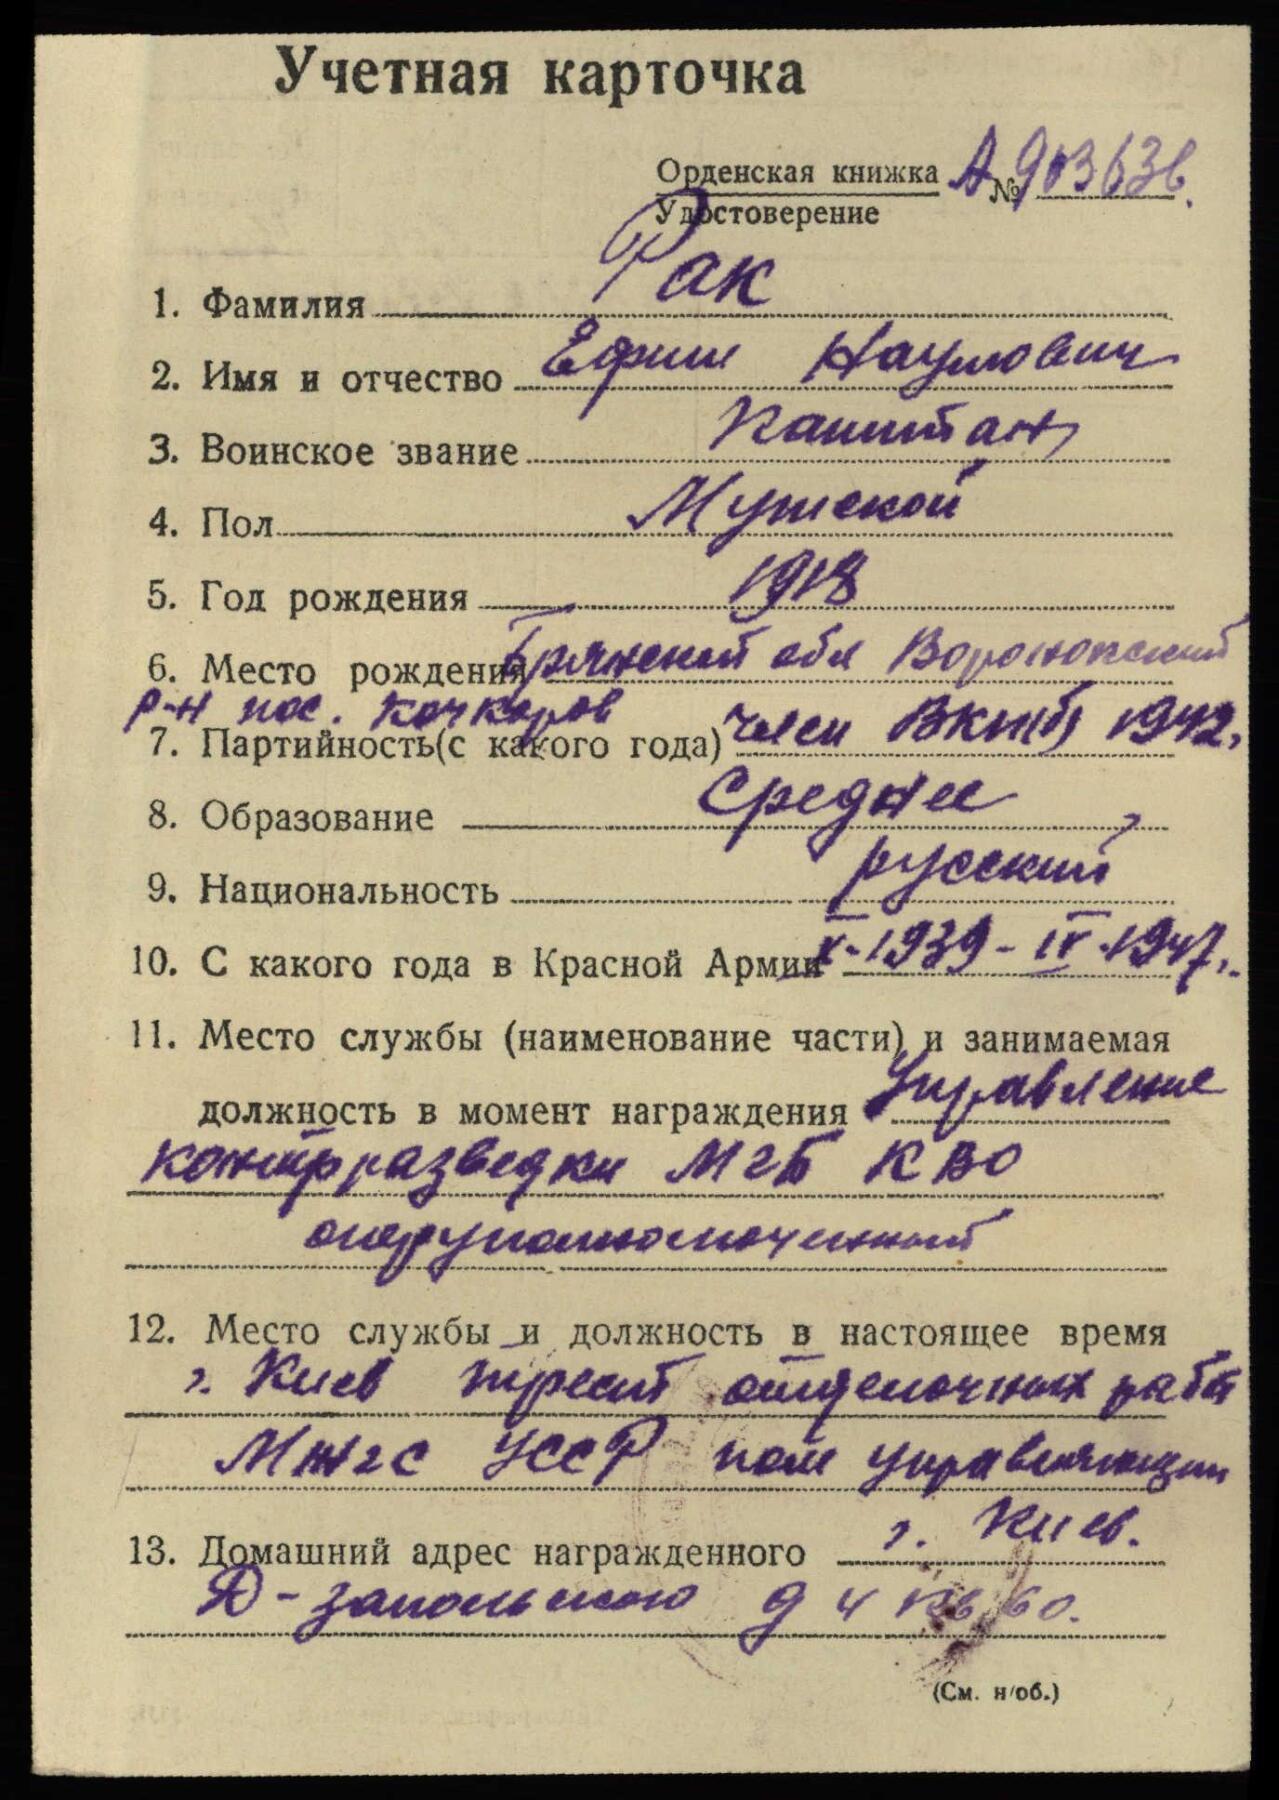 Учетная карточка
Орденская книжка А № 903636.
Удостоверение
1. Фамилия Рак
2. Имя и отчество Ефим Наумович
3. Воинское звание Капитан
4. Пол Мужской
5. Год рождения 1918
6. Место рождения Брянский обл
р-н пос.
7. Партийность (с какого года) член ВКП(б) 1942.
8. Образование Среднее
9. Национальность русский
10. С какого года в Красной Армии X-1939 - IV-1947г.
11. Место службы (наименование части) и занимаемая
должность в момент награждения Управление
контрразведки МГБ КВО
оперуполномоченный
12. Место службы и должность в настоящее время
г. Киев трест отделочных работ
МЖГС УССР пом управляющий
13. Домашний адрес награжденного г. Киев.
Д-Запольского д 4 кв 60.
(См. н/об.)